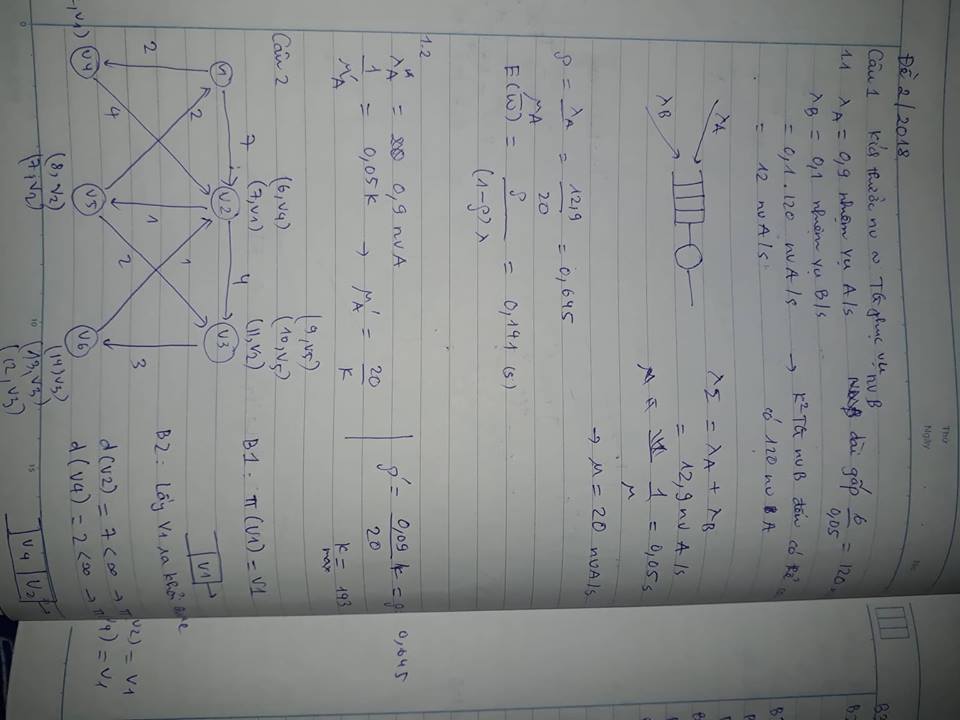 Thứ
Ngày
No.
Đề 2/2018
Câu 1 Kích thước nv ~ TG phục vụ nv B
1.1 λA = 0,9 nhiệm vụ A/s
dài gấp 6/0,05 = 120
λB = 0,1 nhiệm vụ B/s
= 0,1.120 nv A/s → K² TG nv B đến có
= 12 nv A/s có 120 nv A
λA
λB
λΣ = λA + λB
= 12,9 nv A/s
1/μ = 0,05s
→ μ = 20 nv A/s
ρ = λA/μA = 12,9/20 = 0,645
E(w̅) = ρ/((1-ρ)λ) = 0,141 (s)
1.2
λA = 0,9 nv A
1/μ'A = 0,05 K → μ'A = 20/K
ρ' = 0,09/20 k = 0,645
K max = 193
Câu 2
(6,v4)
(7,v1)
(9,v5)
(10,v5)
(11,v2)
7
4
V2
V3
2
2
1
1
3
4
2
V4
V5
V6
,v1)
(8,v2)
(7,v2)
(14,v3)
(13,v3)
(12,v3)
B1: π(V1) = V1
V1
B2: Lấy V1 ra khỏi
d(V2) = 7 < ∞ → π(V2) = V1
d(V4) = 2 < ∞ → π(V4) = V1
V4 V2
0
10
15